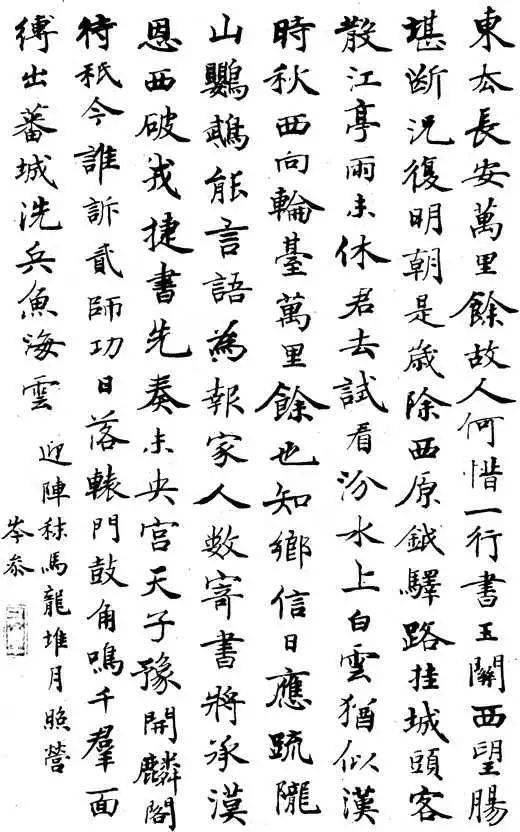 東去長安萬里餘故人何惜一行書玉關西望腸
堪断況復明朝是歳除西原鉞驛路挂城頭客
散江亭雨未休君去試看汾水上白雲猶似漢
時秋西向輪臺萬里餘也知鄉信日應疏隴
山鸚鵡能言語為報家人數寄書將承漢
恩西破戎捷書先奏未央宮天子豫開麟閣
待秖今誰訴貳師功日落轅門鼓角鳴千羣面
縛出蕃城洗兵魚海雲
迎陣秣馬龍堆月照營
岑參